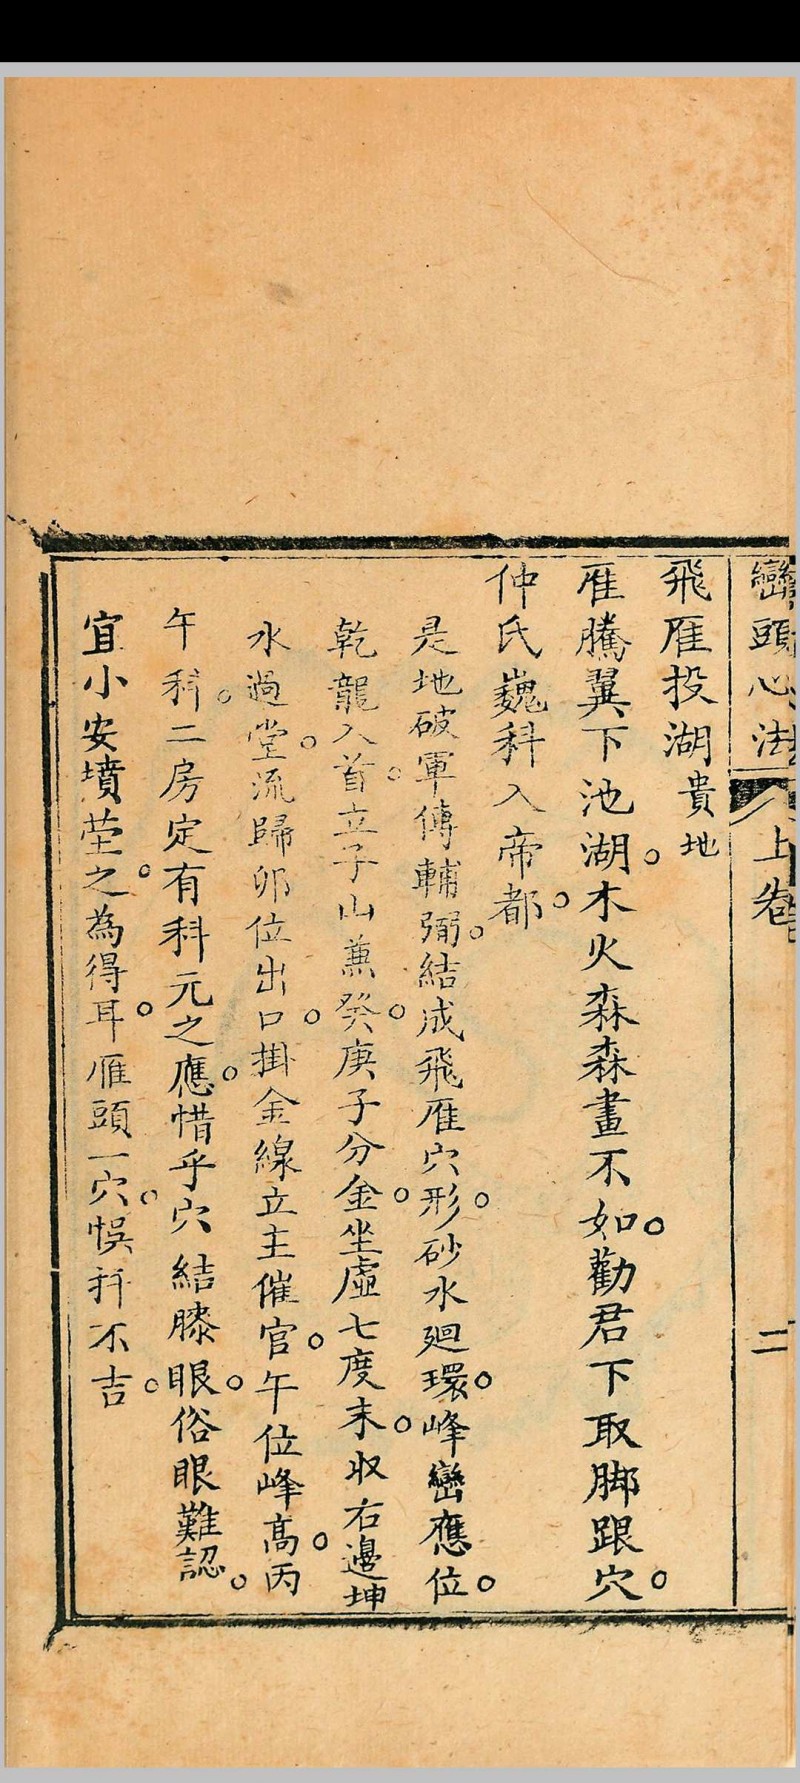 巒頭心法 上卷 二
飛雁投湖貴地
雁騰翼下池湖。木火森森畫不如。勸君下取脚跟穴。
仲氏巍科入帝都。
是地破軍傳輔弼。結成飛雁穴形。砂水廻環。峰巒應位。
乾龍入首。立子山蕪癸。庚子分金。坐虛七度末。收右邊坤
水過堂。流歸卯位出口。掛金線立主催官。午位峰高。丙
午科。二房定有科元之應。惜乎穴結膝眼。俗眼難認。
宜小安墳塋之。為得耳。雁頭一穴。悞扦不吉。